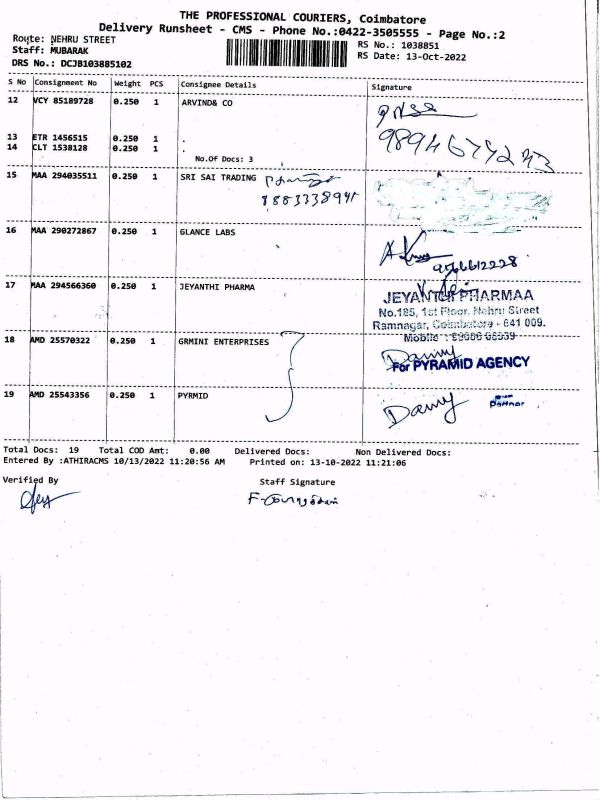 THE PROFESSIONAL COURIERS, Coimbatore
Delivery Runsheet - CMS - Phone No.:0422-3505555 - Page No.:2
Route: NEHRU STREET
Staff: MUBARAK
DRS No.: DCJB103885102
RS No.: 1038851
RS Date: 13-Oct-2022
S No Consignment No Weight PCS Consignee Details Signature
12 VCY 85189728 0.250 1 ARVIND& CO
13 ETR 1456515 0.250 1 .
14 CLT 1538128 0.250 1 .
No.Of Docs: 3
15 MAA 294035511 0.250 1 SRI SAI TRADING
8883338941
16 MAA 290272867 0.250 1 GLANCE LABS
17 MAA 294566360 0.250 1 JEYANTHI PHARMA
JEYANTHI PHARMAA
No.185, 1st Floor, Nehru Street
Ramnagar, Coimbatore - 641 009.
18 AMD 25570322 0.250 1 GRMINI ENTERPRISES
Danny
For PYRAMID AGENCY
19 AMD 25543356 0.250 1 PYRMID
Danny
Partner
Total Docs: 19 Total COD Amt: 0.00 Delivered Docs: Non Delivered Docs:
Entered By :ATHIRACMS 10/13/2022 11:20:56 AM Printed on: 13-10-2022 11:21:06
Verified By Staff Signature